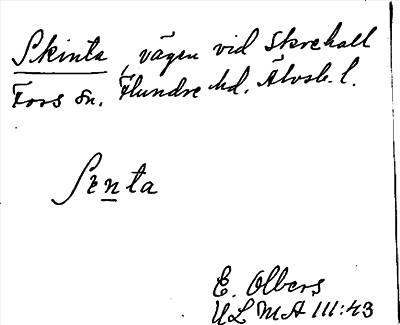 Skinta, vägen vid Skrehall
Fors sn. Flundre hd. Älvsb. l.
Senta
E. Olbers
ULMA III:43